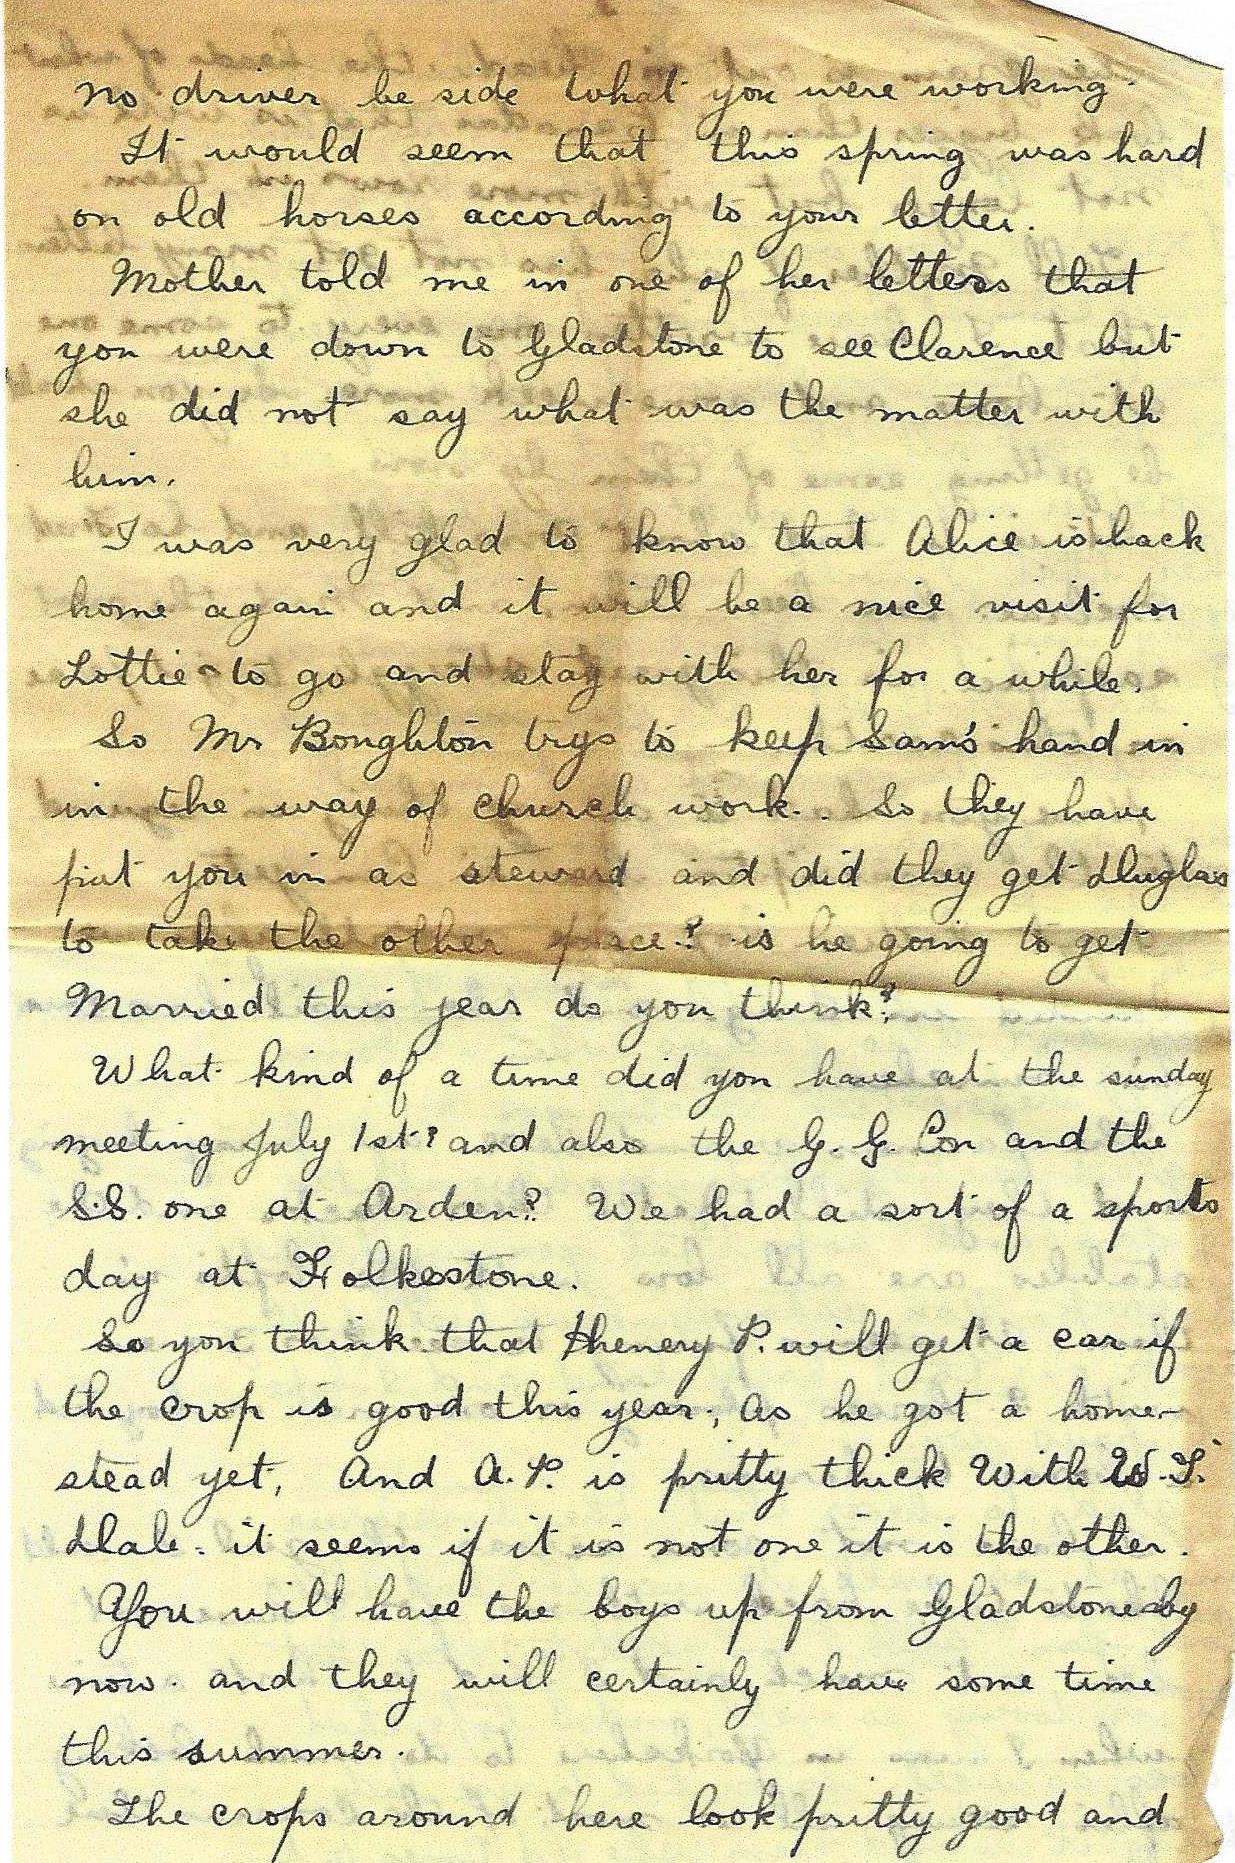 no driver be side what you were working.
It would seem that this spring was hard
on old horses according to your letter.
Mother told me in one of her letters that
you were down to Gladstone to see Clarence but
she did not say what was the matter with
him.
I was very glad to know that Alice is back
home again and it will be a nice visit for
Lottie to go and stay with her for a while.
So Mr Boughton trys to keep Sam's hand in
in the way of church work. . So they have
put you in as steward and did they get Duglas
to take the other place? is he going to get
Married this year do you think?
What kind of a time did you have at the sunday
meeting July 1st? and also the G. G. Con and the
S.S. one at Arden? We had a sort of a sports
day at Folkestone.
So you think that Henery P. will get a car if
the crop is good this year, as he got a home-
stead yet, And A. P. is pritty thick With W. T.
Dale. it seems if it is not one it is the other.
You will have the boys up from Gladstone by
now. and they will certainly have some time
this summer.
The crops around here look pritty good and